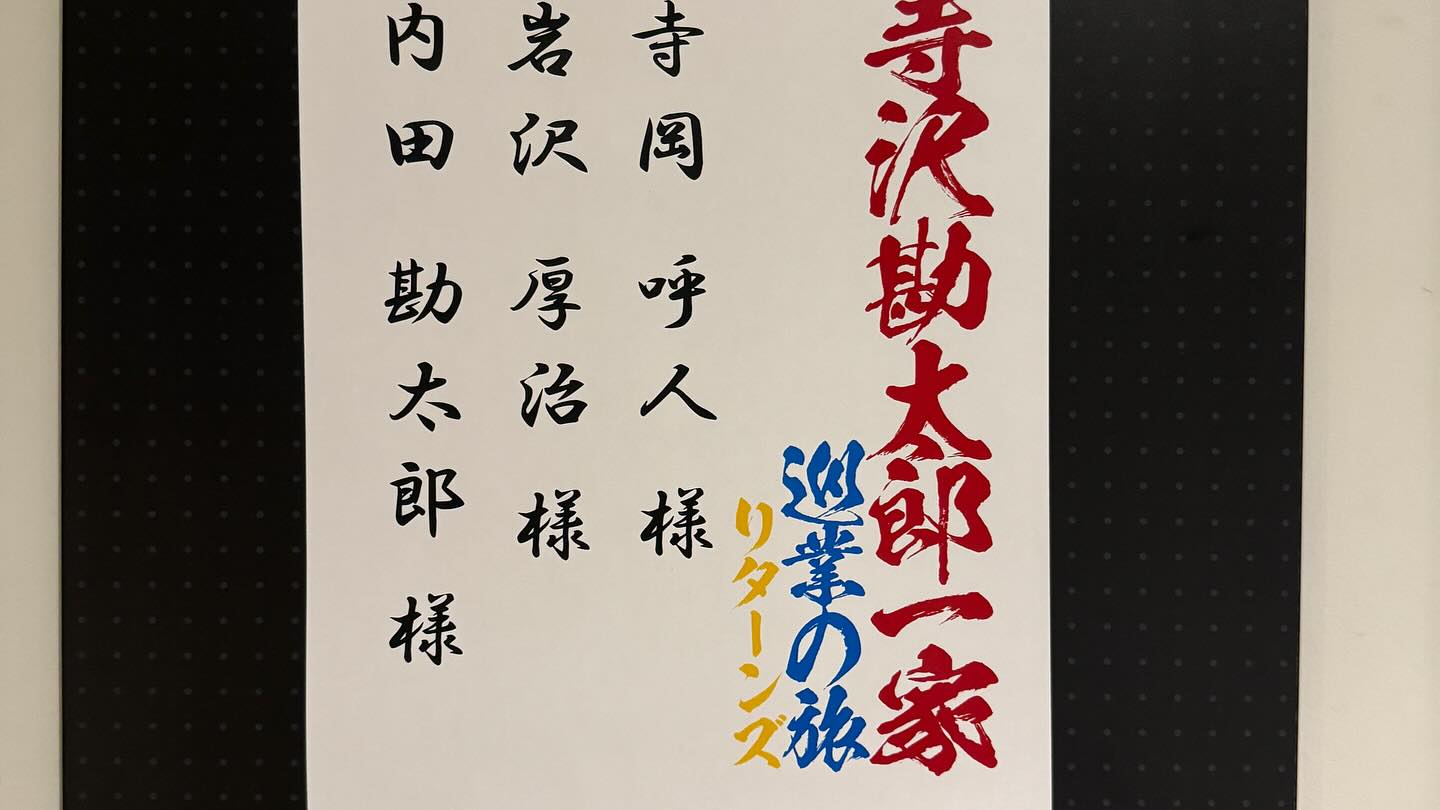 寺沢勘太郎一家
巡業の旅
リターンズ
寺岡 呼人 様
岩沢 厚治 様
内田 勘太郎 様